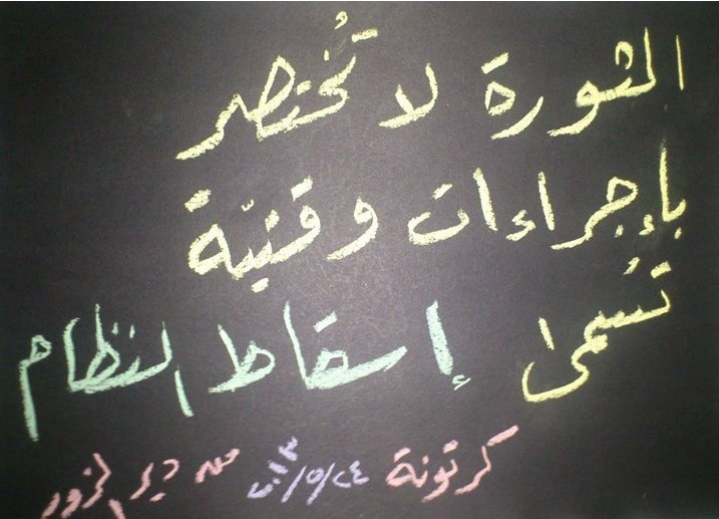 الثورة لا تُختصر
بإجراءات وقتيّة
تُسمى إسقاط النظام
كرتونة ٢٤/٥/٢٠١٣ من دير الزور